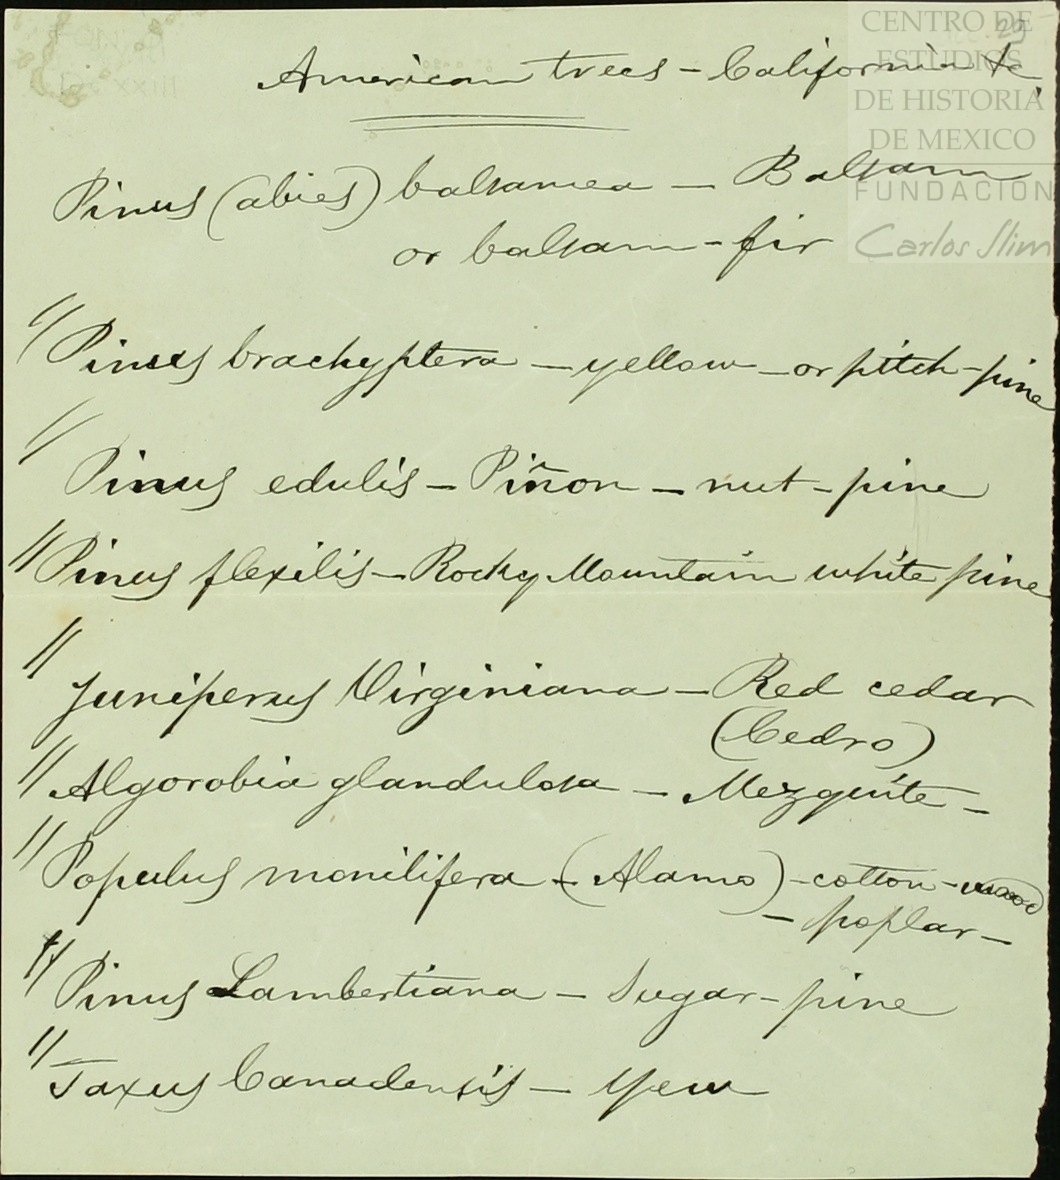 CENTRO DE
ESTUDIOS
DE HISTORIA
DE MEXICO
FUNDACIÓN
Carlos Slim
29
American trees - California &c
Pinus (abies) balsamea - Balsam
or balsam-fir
// Pinus brachyptera - yellow - or pitch-pine
// Pinus edulis - Piñon - nut-pine
// Pinus flexilis - Rocky Mountain white pine
// Juniperus Virginiana - Red cedar
(Cedro)
// Algorobia glandulosa - Mezquite -
// Populus monilifera - (Alamo) - cotton-wood
- poplar -
// Pinus Lambertiana - Sugar-pine
// Taxus Canadensis - Yew